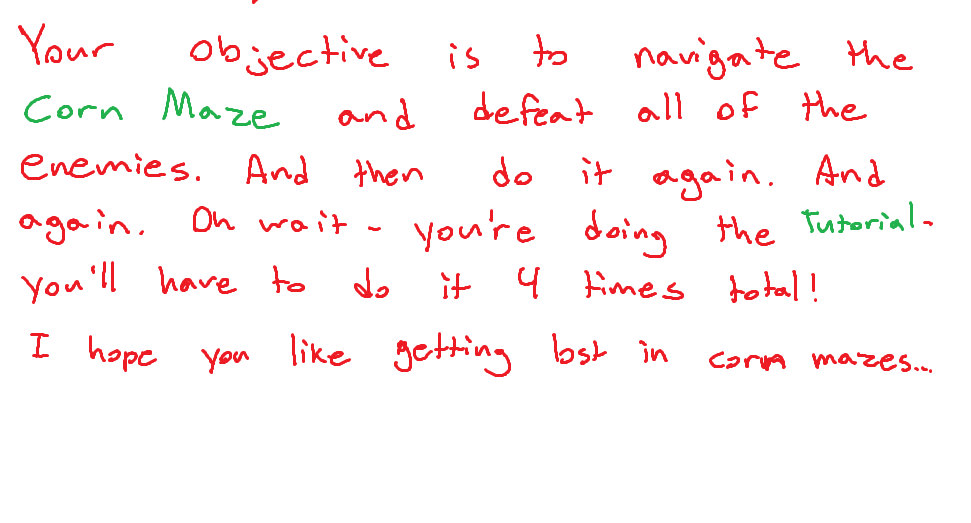 Your objective is to navigate the
Corn Maze and defeat all of the
enemies. And then do it again. And
again. Oh wait - you're doing the Tutorial-
you'll have to do it 4 times total!
I hope you like getting lost in corn mazes...